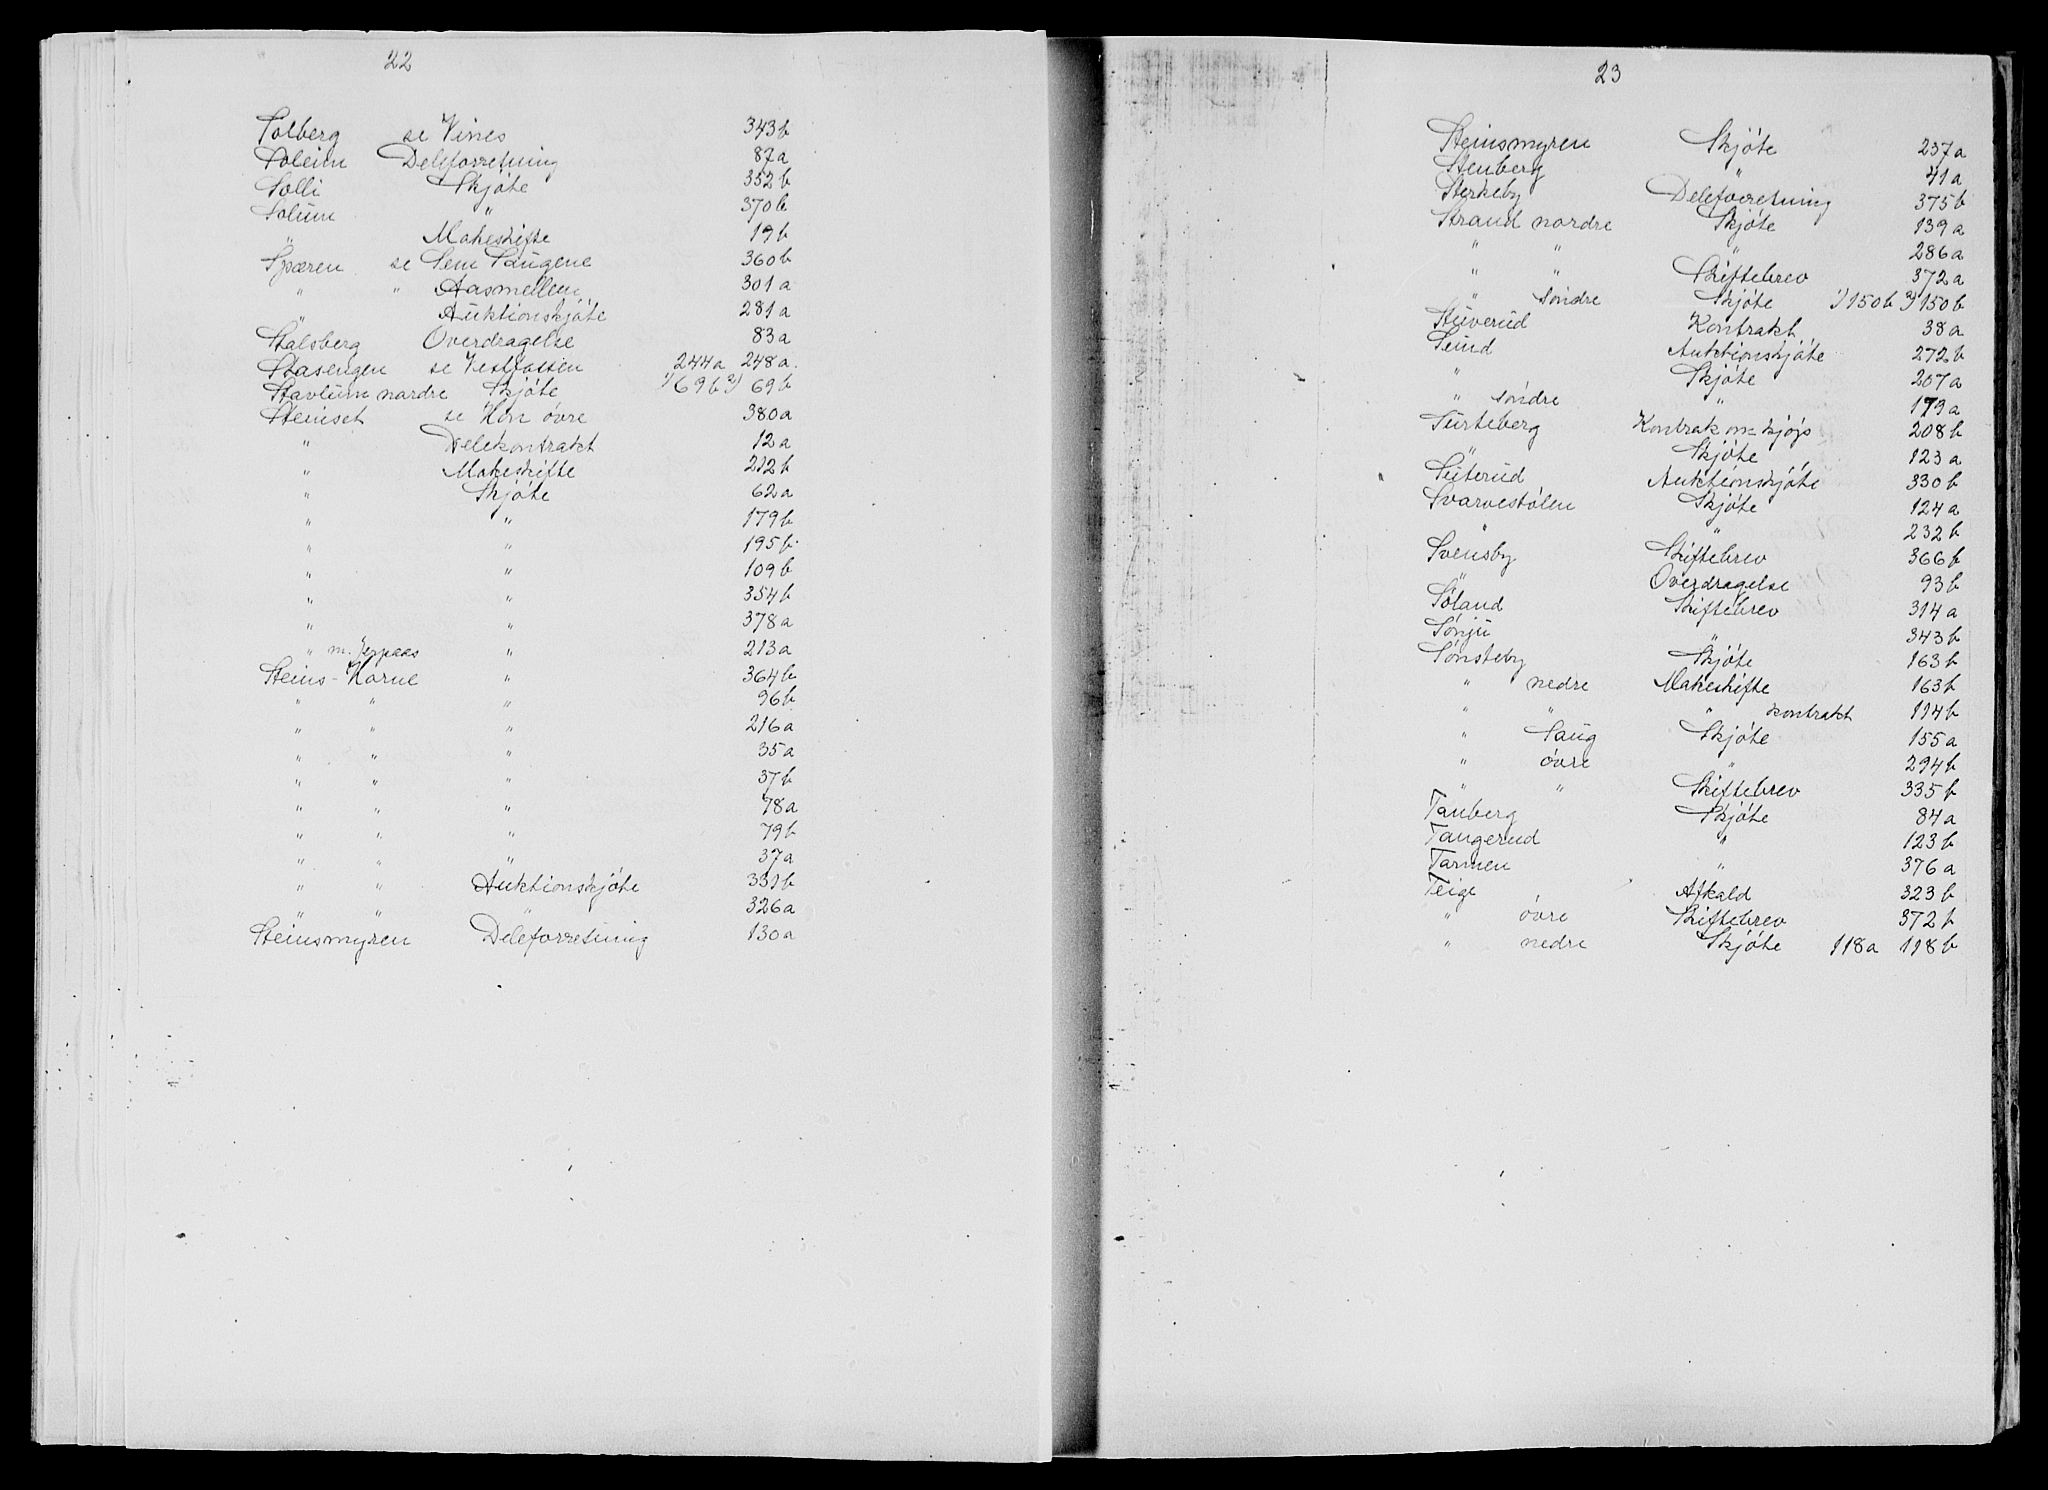 22
Solberg se Vines 343b
Soleim Deleforretning 87a
Solli Skjöte 352b
Solum " 370b
" Makeskifte 19b
Spæren se Sem Saugene 360b
" " Aasmellem 301a
" Auktionskjöte 281a
Stålsberg Overdragelse 83a
Stasengen se Vestfossen 244a 248a.
Stavlum nordre Skjöte 1/69b 2/69b
Steinset se Hön övre 380a
" Delekontrakt 12a
" Makeskifte 212b
" Skjöte 62a
" " 179b
" " 195b.
" " 109b
" " 354b
" " 378a
" m. Jerpaas " 213a
Steins-Horne " 364b
" " " 96b
" " " 216a
" " " 35a
" " " 37b
" " " 78a
" " " 79b
" " " 37a
" " Auktionskjöte 331b
" " " 326a
Steinsmyren Deleforretning 130a
23
Steinsmyren Skjöte 237a
Stenberg " 41a
Sterkeby Deleforretning 375b
Strand nordre Skjöte 139a
" " " 286a
" " Skiftebrev 372a
" söndre Skjöte 1/150b 2/150b
Stuverud Kontrakt 38a
Sund Auktionskjöte 272b
" Skjöte 207a
" söndre " 179a
Surteberg Kontrak om skjös 208b
" Skjöte 123a
Suterud Auktionskjöte 330b
Svarvestölen Skjöte 124a
" " 232b
Svensby Skiftebrev 366b
" Overdragelse 93b
Söland Skiftebrev 314a
Sönju " 343b
Sönsteby Skjöte 163b
" nedre Makeskifte 163b
" " " kontrakt 114b
" Saug Skjöte 155a
" övre " 294b
" " Skiftebrev 335b
Tanberg Skjöte 84a
Tangerud " 123b
Tarmen " 376a
Teige Afkald 323b
" övre Skiftebrev 372b
" nedre Skjöte 118a 118b